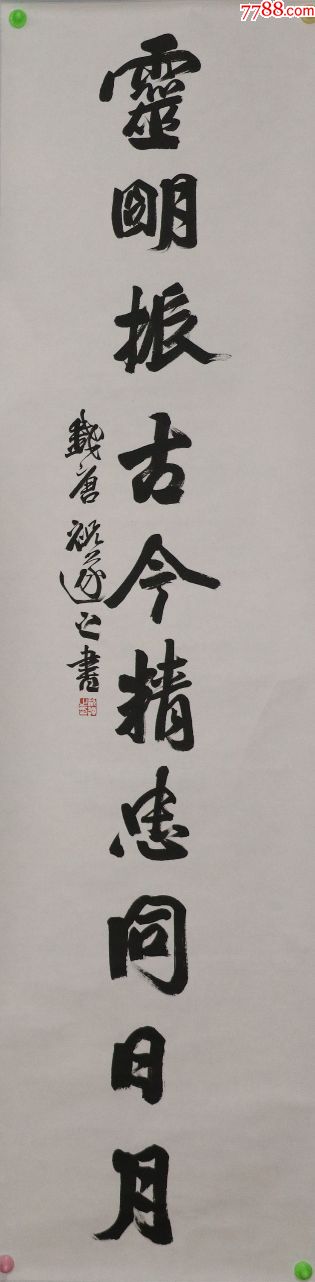 7788.com
靈明振古今精忠同日月
戲唐祝遂之書